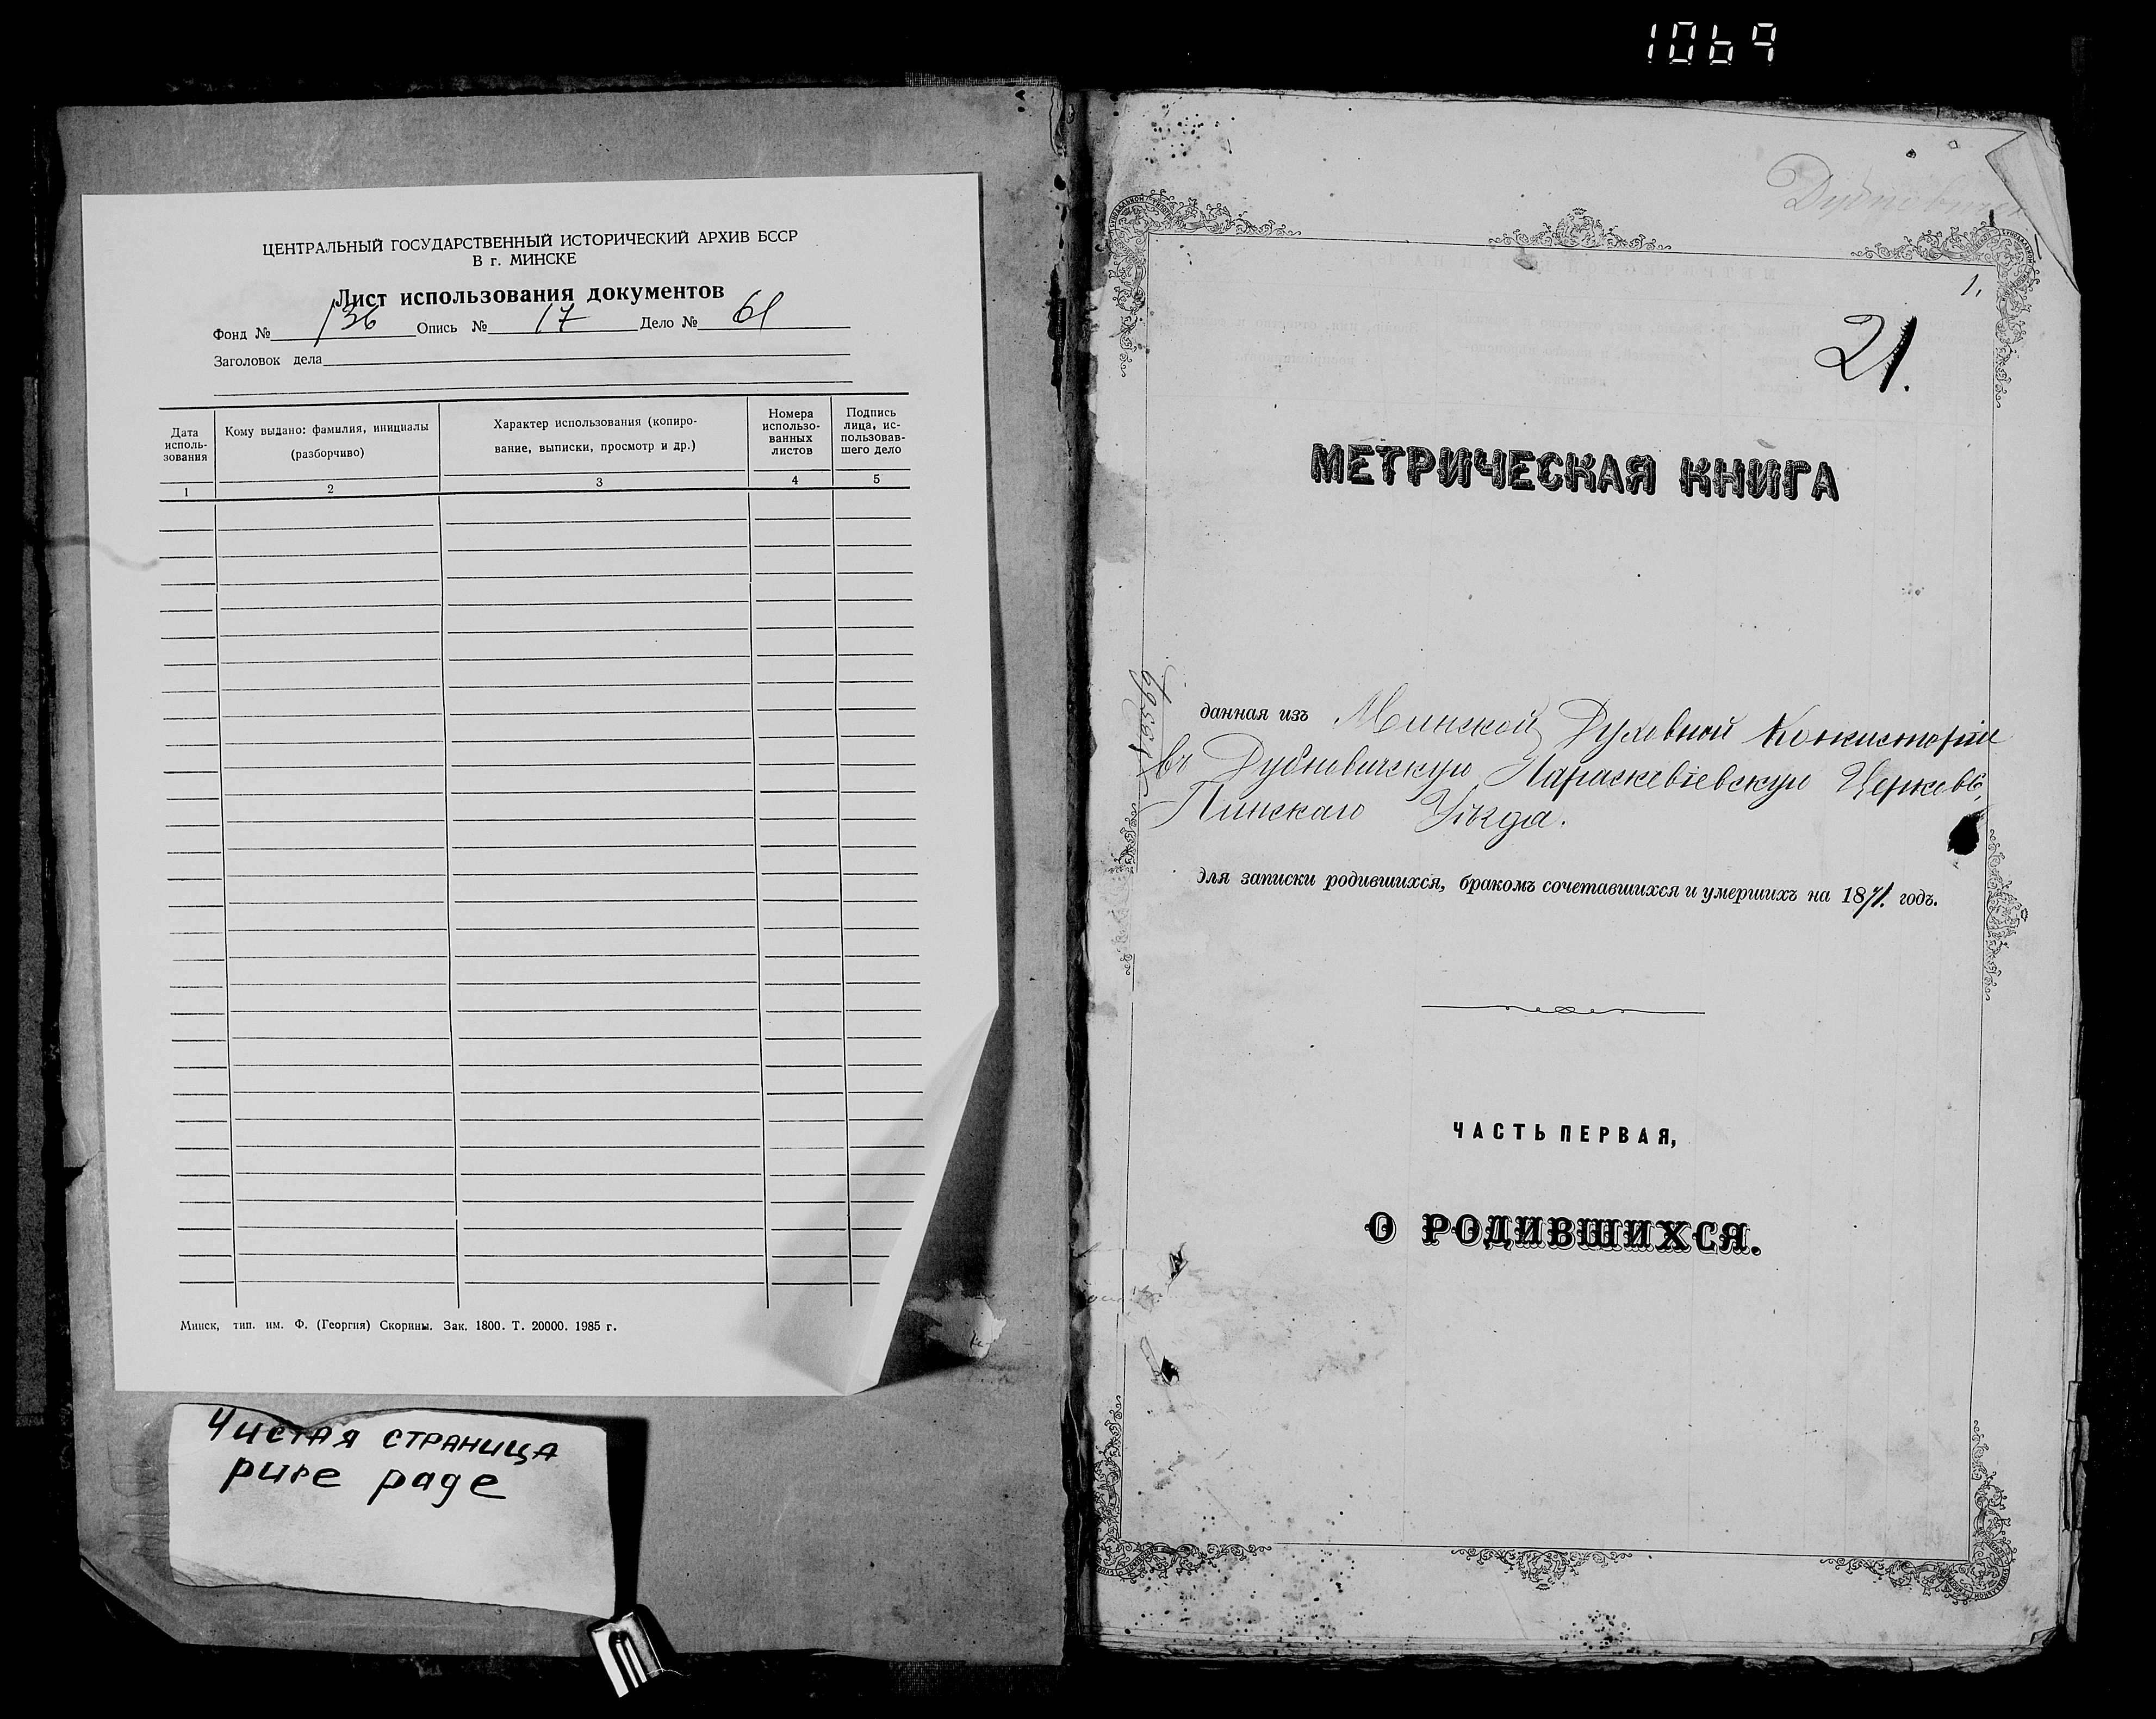 1069
ЦЕНТРАЛЬНЫЙ ГОСУДАРСТВЕННЫЙ ИСТОРИЧЕСКИЙ АРХИВ БССР
В г. МИНСКЕ
Лист использования документов
Фонд № 136 Опись № 17 Дело № 61
Заголовок дела
Дата исполь-зования
Кому выдано: фамилия, инициалы (разборчиво)
Характер использования (копиро-вание, выписки, просмотр и др.)
Номера использо-ванных листов
Подпись лица, ис-пользовав-шего дело
1 2 3 4 5
Минск, тип. им. Ф. (Георгия) Скорины. Зак. 1800. Т. 20000. 1985 г.
Чистая страница
pure page
1.
21.
МЕТРИЧЕСКАЯ КНИГА
данная изъ Минской Духовной Консисторіи
въ Дубновичскую Параскевіевскую Церковь,
Пинскаго Уѣзда.
для записки родившихся, бракомъ сочетавшихся и умершихъ на 1871. годъ.
ЧАСТЬ ПЕРВАЯ,
О РОДИВШИХСЯ.